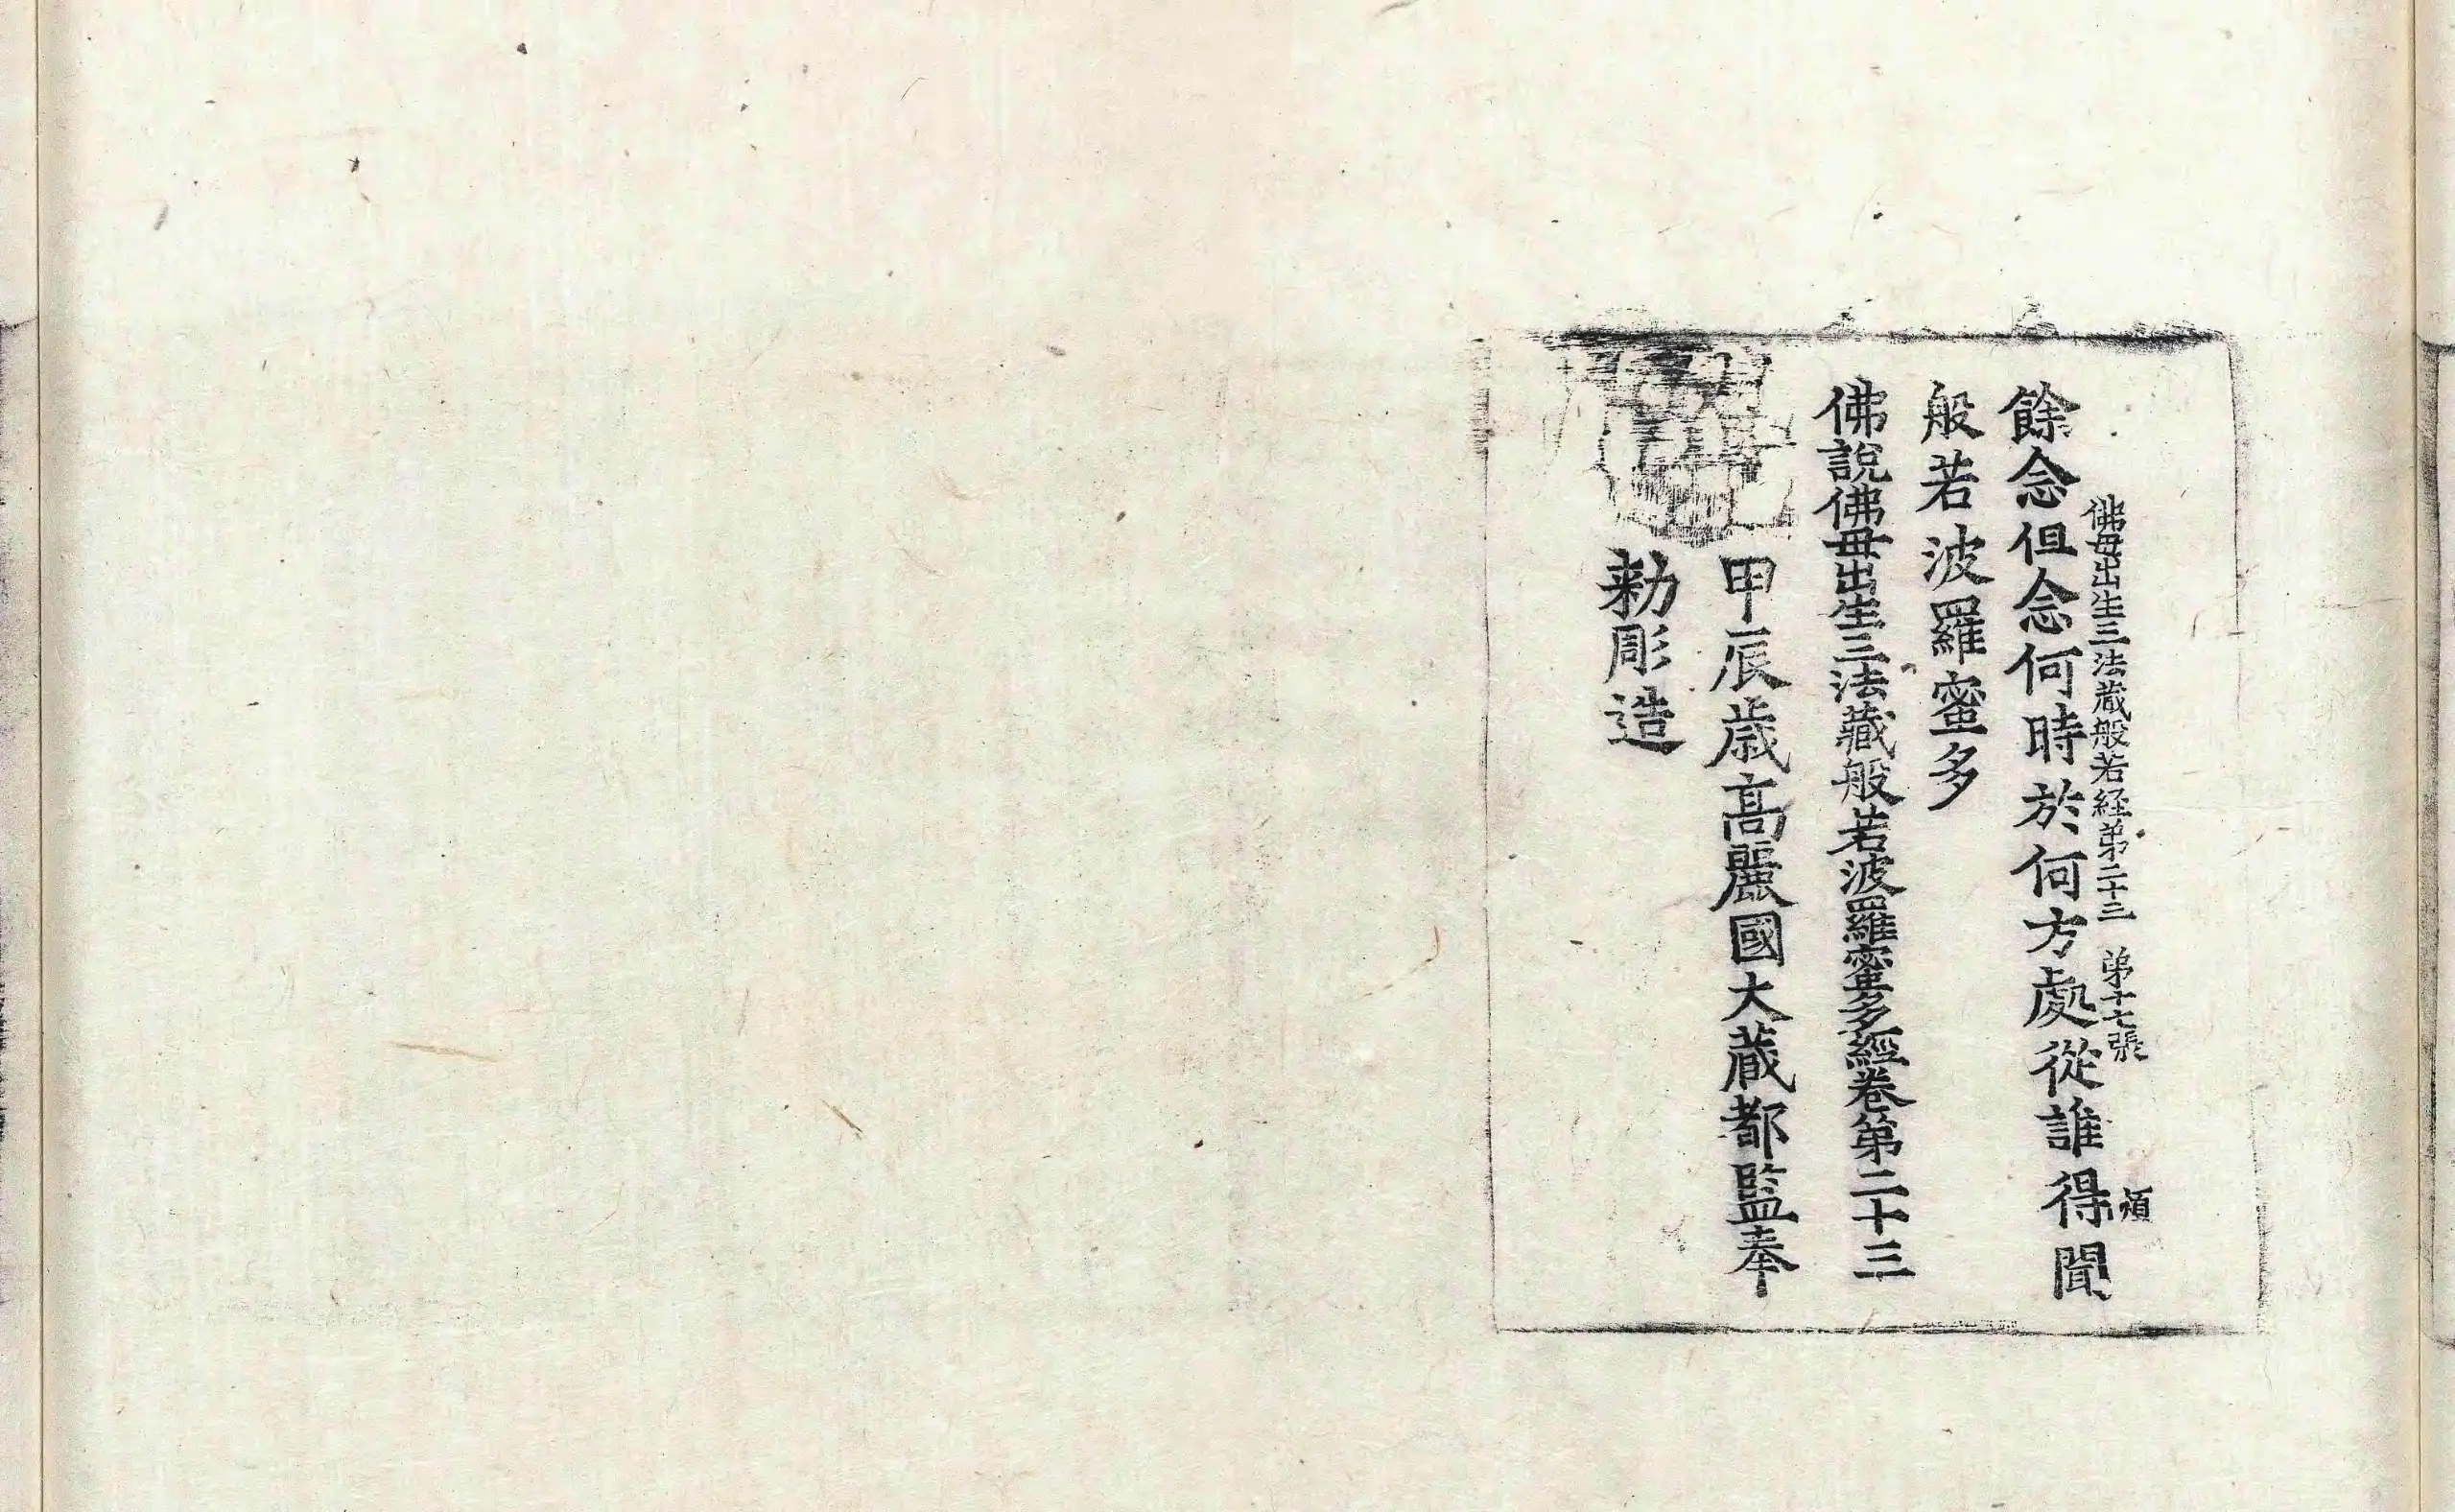 佛母出生三法藏般若経第二十三 第十七張 頙
餘念但念何時於何方處從誰得聞
般若波羅蜜多
佛說佛母出生三法藏般若波羅蜜多經卷第二十三
甲辰歳高麗國大藏都監奉
勑彫造